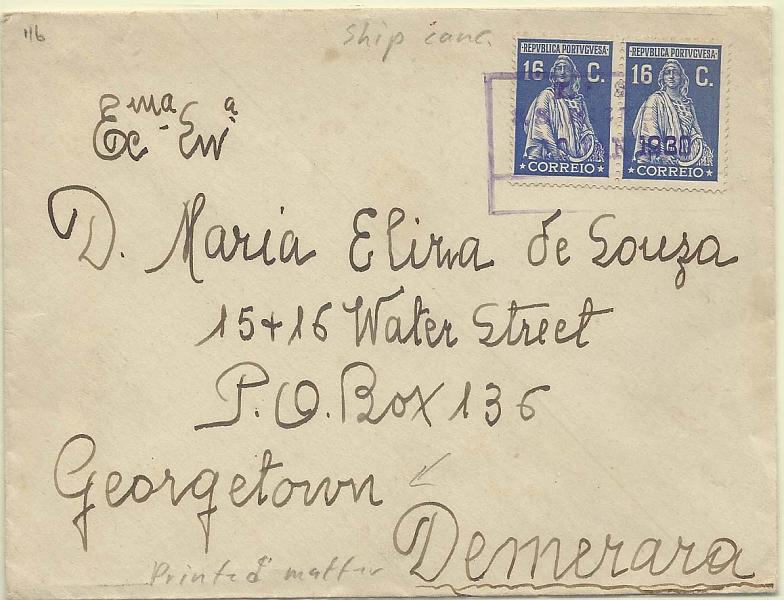 116
Ship canc.
·REPVBLICA PORTVGVESA·
16 C.
★CORREIO★
·REPVBLICA PORTVGVESA·
16 C.
★CORREIO★
1930
D. Maria Elina de Souza
15+16 Water Street
P. O. Box 136
Georgetown
Demerara
Printed matter